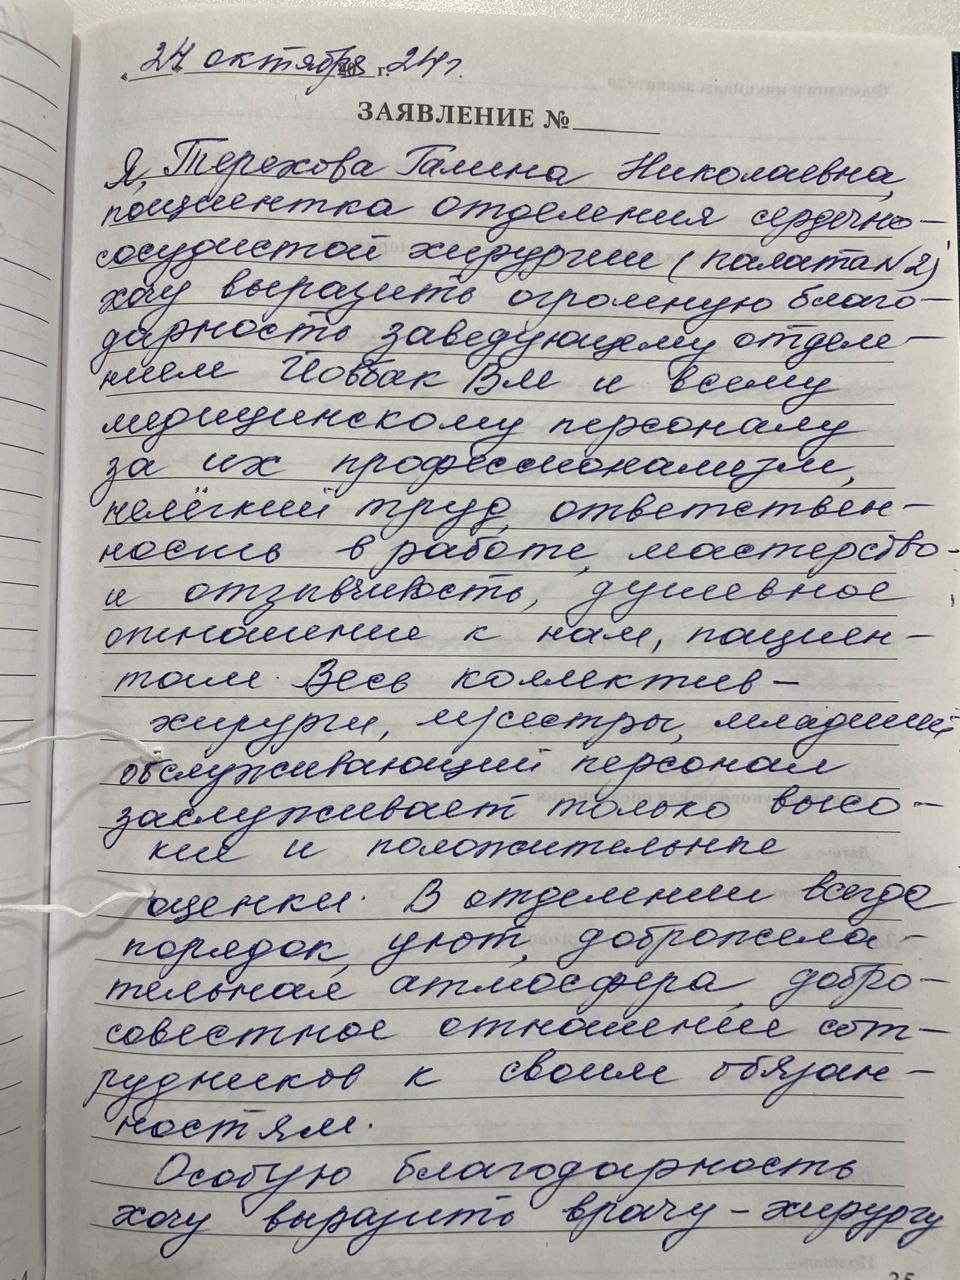 24 октября 20 г. 24 г.
ЗАЯВЛЕНИЕ №
Я, Терехова Галина Николаевна,
пациентка отделения сердечно-
сосудистой хирургии (палата №2)
хочу выразить огромную благо-
дарность заведующему отделе-
нием Йовбак ВМ и всему
медицинскому персоналу
за их профессионализм,
нелёгкий труд, ответствен-
ность в работе, мастерство
и отзывчивость, душевное
отношение к нам, пациен-
там. Весь коллектив -
хирурги, м/сестры, младший
обслуживающий персонал
заслуживает только высо-
кие и положительные
оценки. В отделении всегда
порядок, уют, доброжела-
тельная атмосфера, добро-
совестное отношение сот-
рудников к своим обязан-
ностям.
Особую благодарность
хочу выразить врачу-хирургу